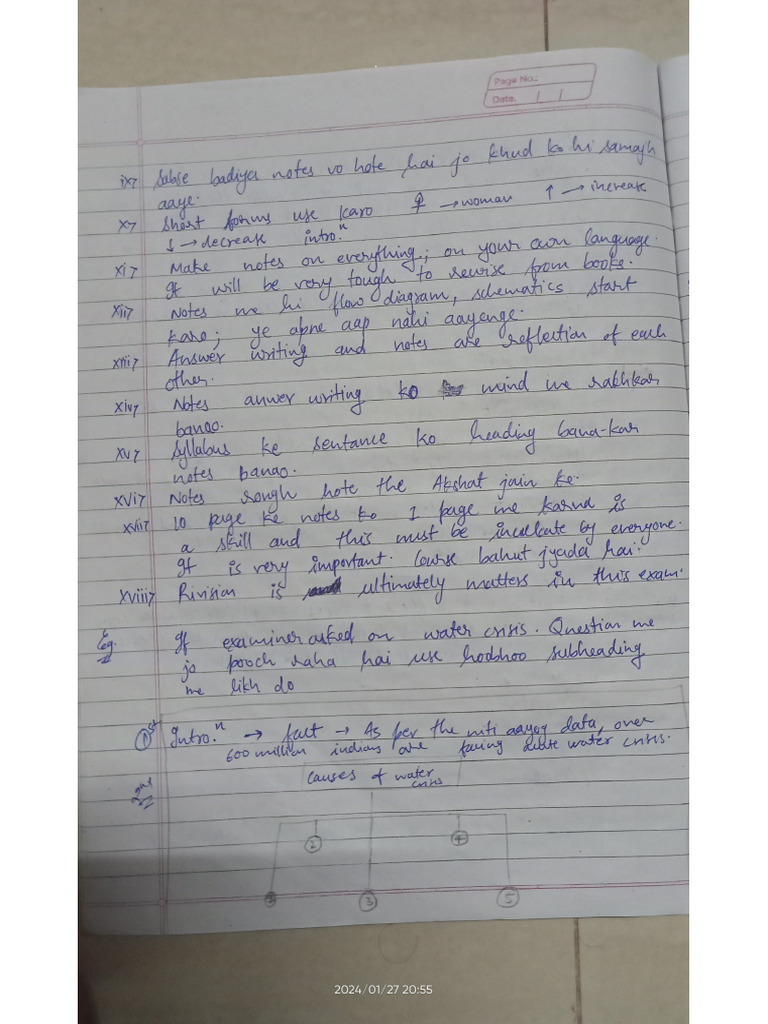 Page No.:
Date.
ix> Sabse badiya notes vo hote hai jo khud ko hi samajh
aaye.
x> Short forms use karo ♀ → woman ↑ → increase
↓ → decrease intro.n
xi> Make notes on everything; on your own language.
It will be very tough to rewise from books.
xii> Notes me hi flow diagram, schematics start
karo; ye apne aap nahi aayenge.
xiii> Answer writing and notes are reflection of each
other.
xiv> Notes anwer writing ko mind me rakhkar
banao.
xv> Syllabus ke sentance ko heading bana-kar
notes banao.
xvi> Notes rough hote the Akshat jain ke.
xvii> 10 page ke notes ko 1 page me karna is
a skill and this must be incultate by everyone.
It is very important. Course bahut jyada hai.
xviii> Rivision is ultimately matters in this exam.
Eg. If examiner asked on water crisis. Question me
jo pooch raha hai use hoobhoo subheading
me likh do
1st Intro.n → fact → As per the niti aayog data, over
600 million indians are facing water crisis.
2nd
causes of water
crisis
2 4
3 5
2024/01/27 20:55